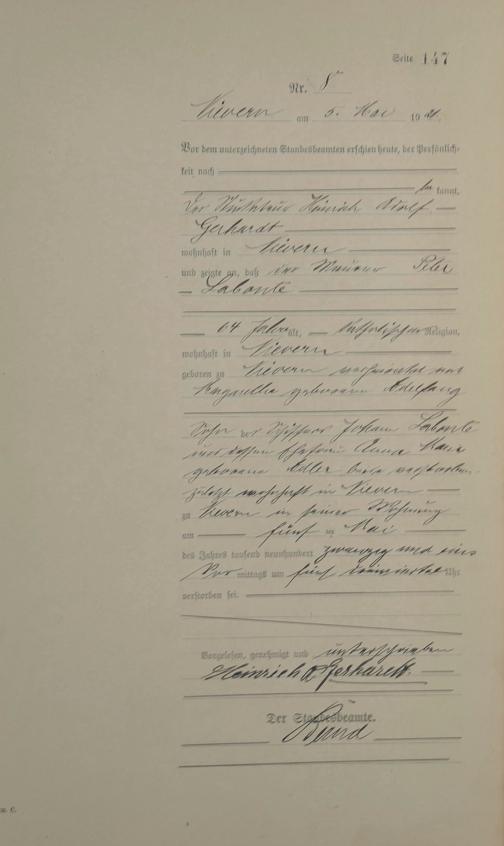 Seite 147
Nr. 8
Nievern am 5. Mai 19 21.
Vor dem unterzeichneten Standesbeamten erschien heute, der Persönlich-
keit nach
be kannt,
der Heinrich Adolf
Gerhardt
wohnhaft in Nievern
und zeigte an, daß der Maurer Peter
Labonte
64 Jahre alt, katholischer Religion,
wohnhaft in Nievern
geboren zu Nievern verheiratet mit
geborene
Sohn des Schiffers Johann Labonte
und dessen Ehefrau Anna Maria
geborene Adler beide verstorben
zuletzt wohnhaft in Nievern
zu Nievern in seiner Wohnung
am fünf ten Mai
des Jahres tausend neunhundert zwanzig und eins
Vor mittags um fünf Uhr
verstorben sei.
Vorgelesen, genehmigt und unterschrieben
Heinrich A Gerhardt.
Der Standesbeamte.